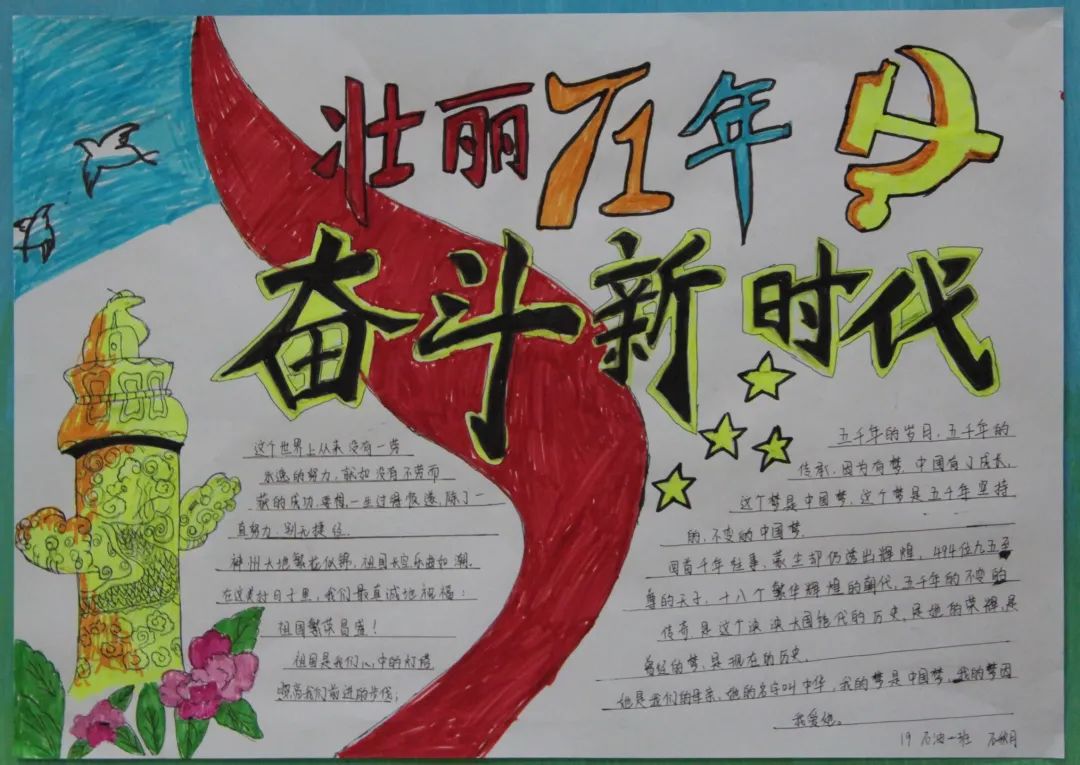 壮丽71年
奋斗新时代
这个世界上从来没有一劳
永逸的努力,就如没有不劳而
获的成功,要想一生过得惬意,除了一
直努力,别无捷径.
神州大地繁花似锦,祖国天空乐曲如潮.
在这美好日子里,我们最真诚地祝福:
祖国繁荣昌盛!
祖国是我们心中的灯塔
照亮我们前进的步伐;
五千年的岁月,五千年的
传承,因为有梦,中国有了成长,
这个梦是中国梦,这个梦是五千年坚持
的,不变的中国梦.
回首千年往事,蒙尘却仍透出辉煌,494位九五至
尊的天子,十八个繁华辉煌的朝代,五千年的不变的
传奇,是这个泱泱大国绝代的历史,是她的荣辉,是
曾经的梦,是现在的历史.
她是我们的母亲,她的名字叫中华,我的梦是中国梦,我的梦因
我爱她。
19 石油一班